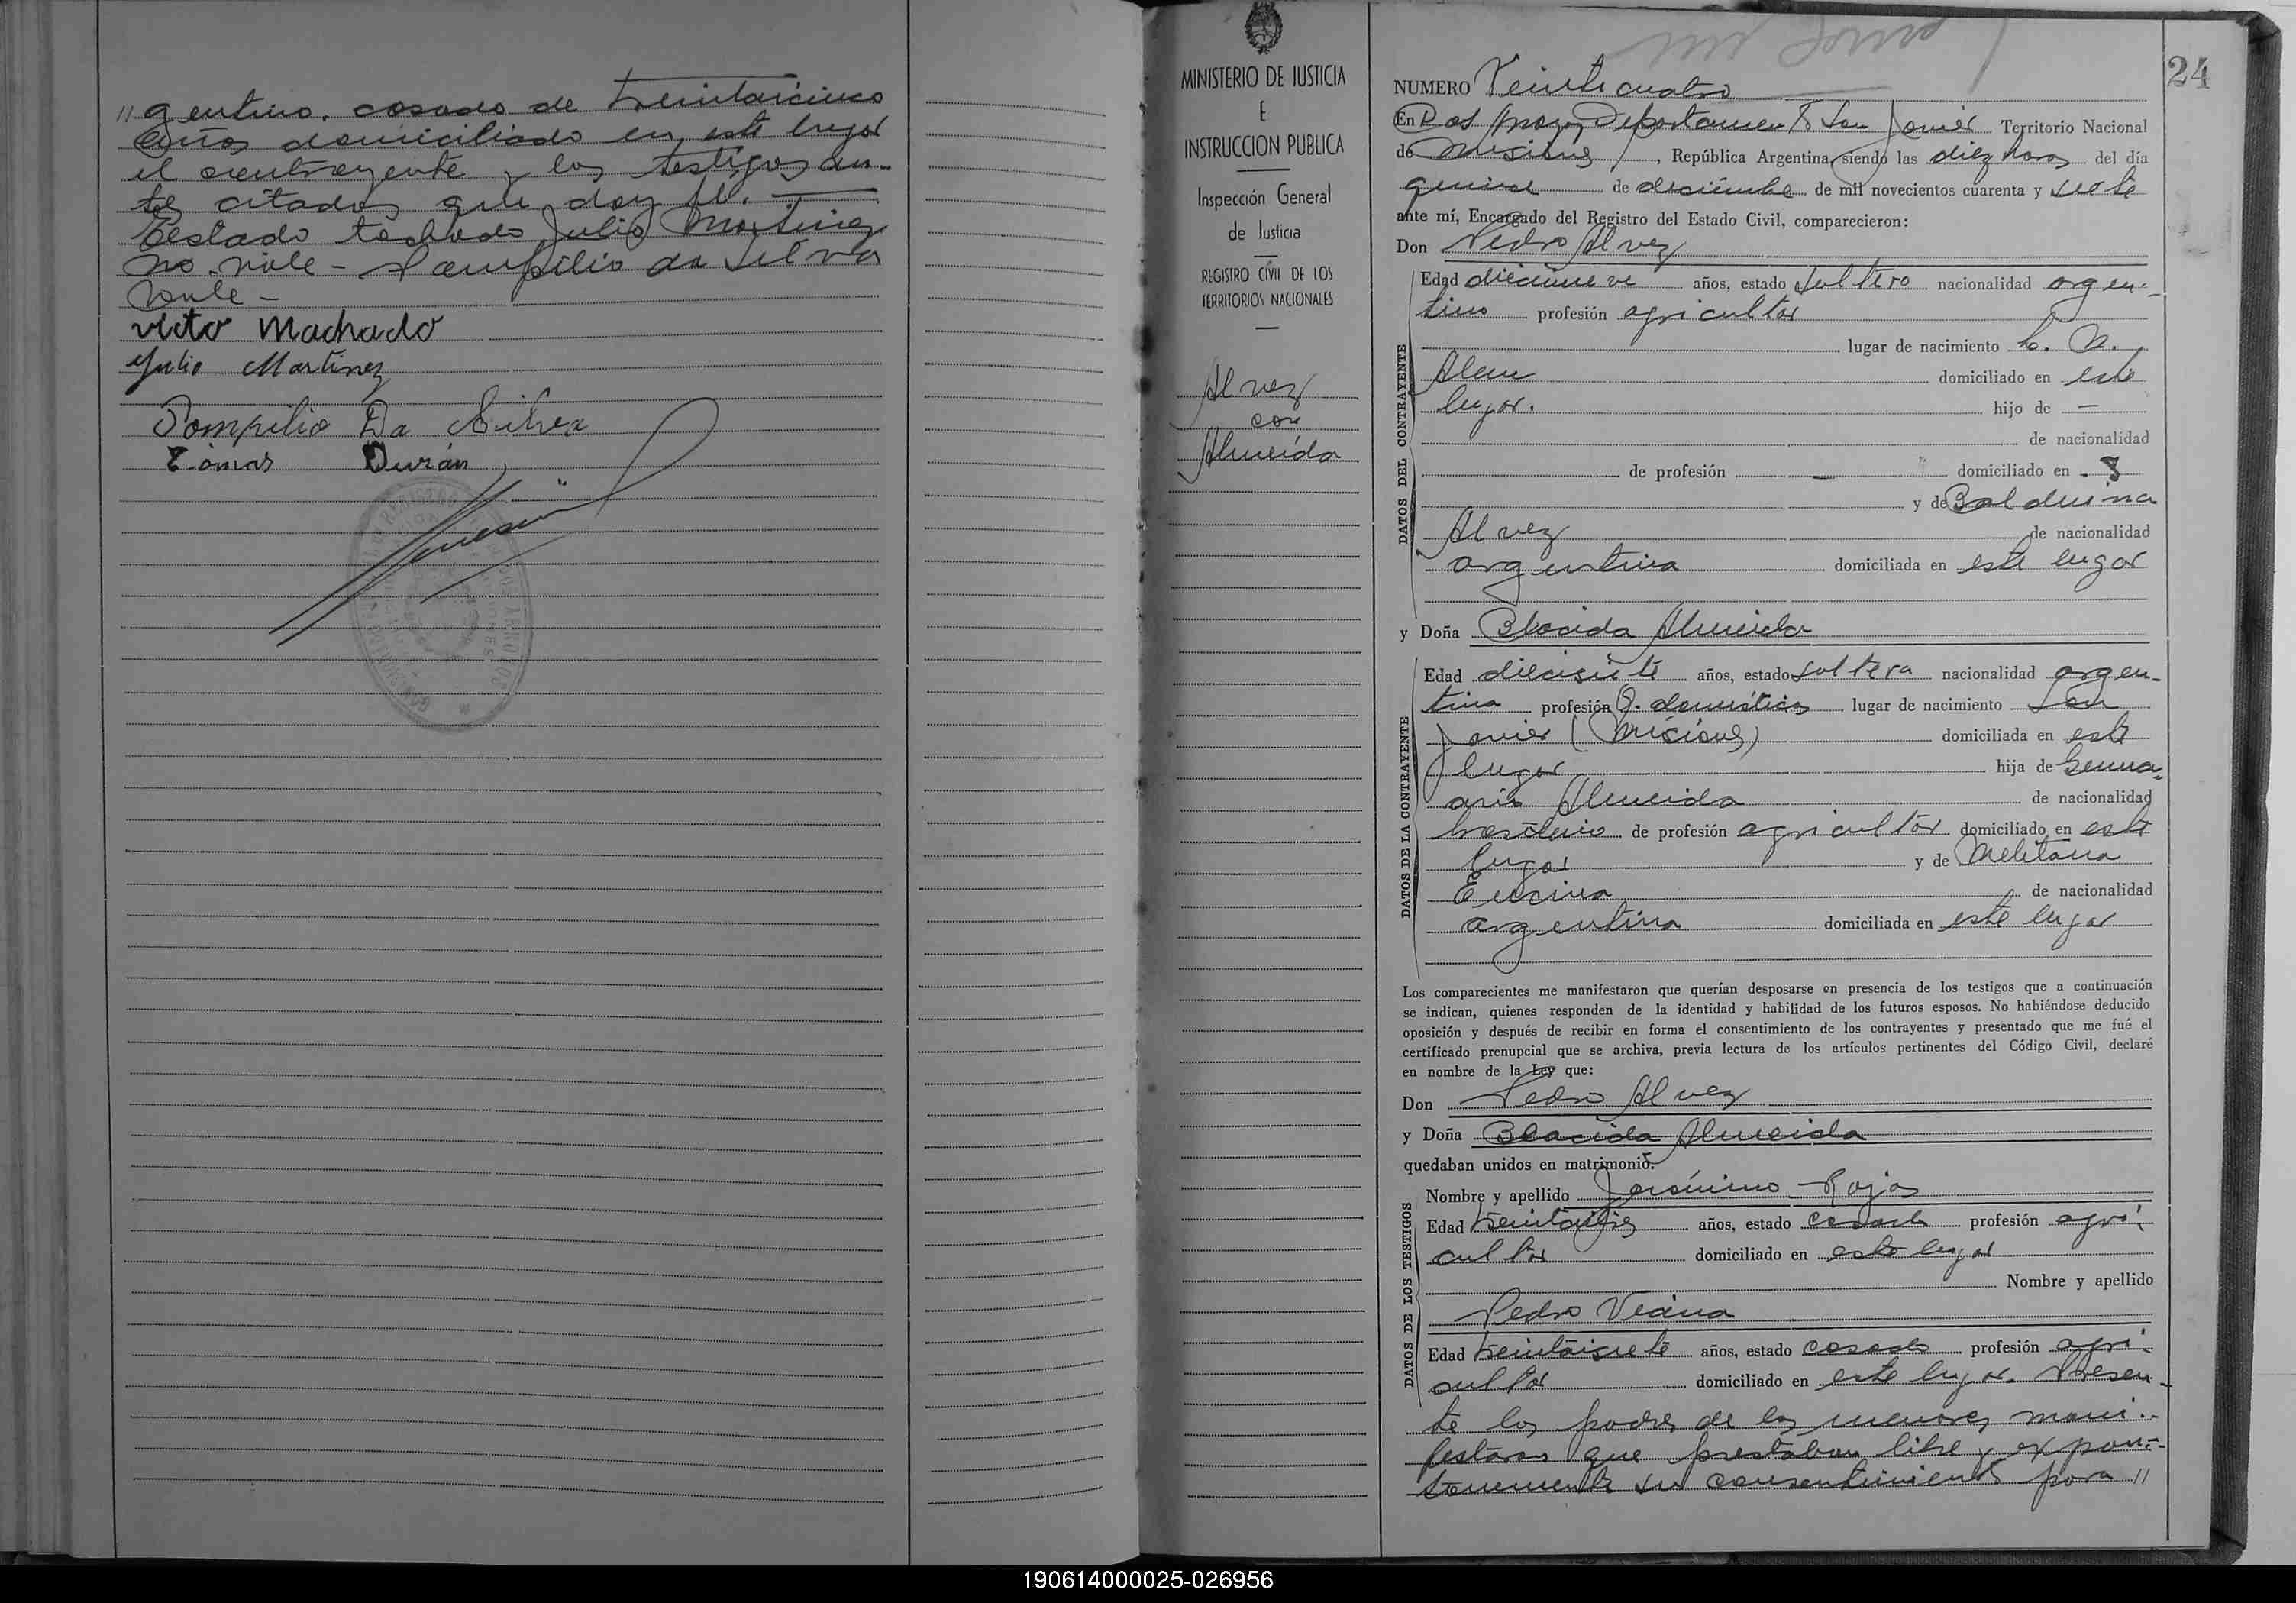 // gentino, casado de treintaicinco
años domiciliado en este lugar
el contrayente y los testigos an-
tes citados que doy fé.
Testado tachado Julio Martinez
no vale - Pompilio da Silva
vale -
victo Machado
Julio Martinez
Pompilio Da Silva
Tomas Durán
MINISTERIO DE JUSTICIA
E
INSTRUCCION PUBLICA
Inspección General
de Justicia
REGISTRO CIVIL DE LOS
TERRITORIOS NACIONALES
Alvez
con
Almeida
24
NUMERO Veinticuatro
En Dos Mayo, Departamento San Javier Territorio Nacional
de Misiones, República Argentina, siendo las diez horas del día
quince de diciembre de mil novecientos cuarenta y siete
ante mí, Encargado del Registro del Estado Civil, comparecieron:
Don Pedro Alvez
DATOS DEL CONTRAYENTE
Edad diecinueve años, estado soltero nacionalidad argen-
tino profesión agricultor
lugar de nacimiento L. N.
Alem domiciliado en este
lugar. hijo de —
de nacionalidad
de profesión — domiciliado en -
y de Balduina
Alvez de nacionalidad
argentina domiciliada en este lugar
y Doña Blacida Almeida
DATOS DE LA CONTRAYENTE
Edad diecisiete años, estado soltera nacionalidad argen-
tina profesión Q. domésticos lugar de nacimiento San
Javier (Misiones) domiciliada en este
lugar hija de Genna-
ario Almeida de nacionalidad
brasilero de profesión agricultor domiciliado en este
lugar y de Melitona
Encina de nacionalidad
argentina domiciliada en este lugar
Los comparecientes me manifestaron que querían desposarse en presencia de los testigos que a continuación
se indican, quienes responden de la identidad y habilidad de los futuros esposos. No habiéndose deducido
oposición y después de recibir en forma el consentimiento de los contrayentes y presentado que me fué el
certificado prenupcial que se archiva, previa lectura de los artículos pertinentes del Código Civil, declaré
en nombre de la Ley que:
Don Pedro Alvez
y Doña Blacida Almeida
quedaban unidos en matrimonio.
DATOS DE LOS TESTIGOS
Nombre y apellido Jerónimo Rojas
Edad años, estado casado profesión agri-
cultor domiciliado en este lugar
Nombre y apellido
Pedro Viana
Edad treintaisiete años, estado casado profesión agri-
cultor domiciliado en este lugar. Presen-
te los padres de los menores mani-
festaron que prestaban libre y expon-
taneamente su consentimiento para //
190614000025-026956